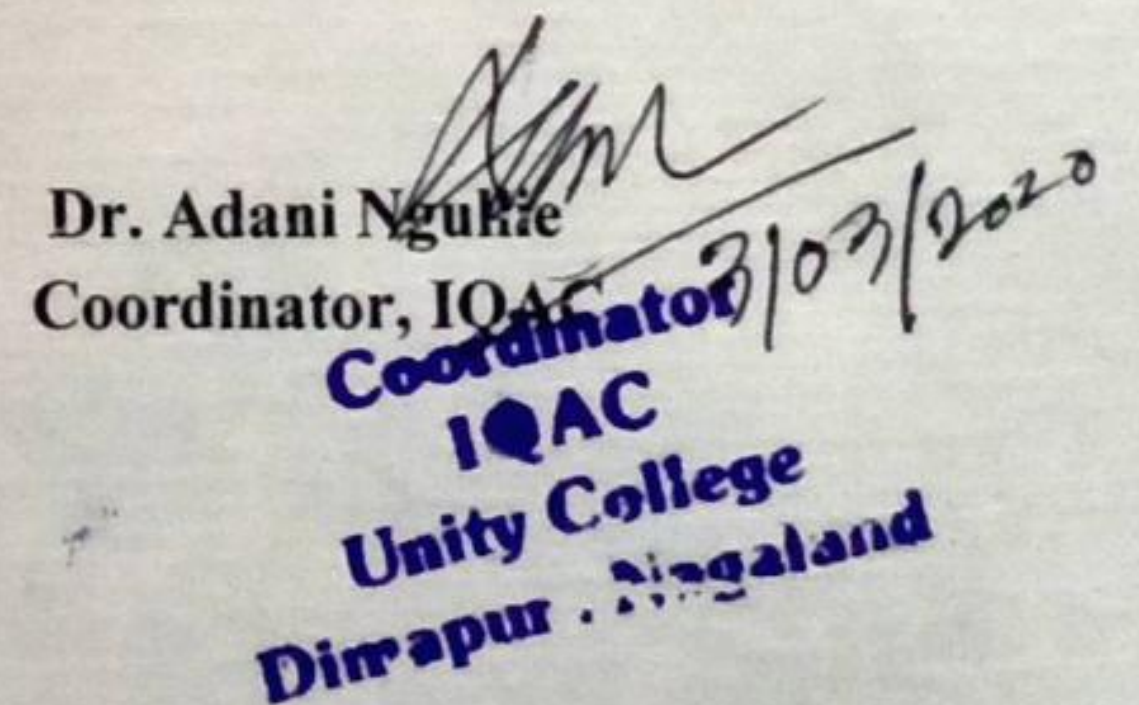 Dr. Adani Ngullie
Coordinator, IQAC
3/03/2020
Coordinator
IQAC
Unity College
Dimapur . Nagaland